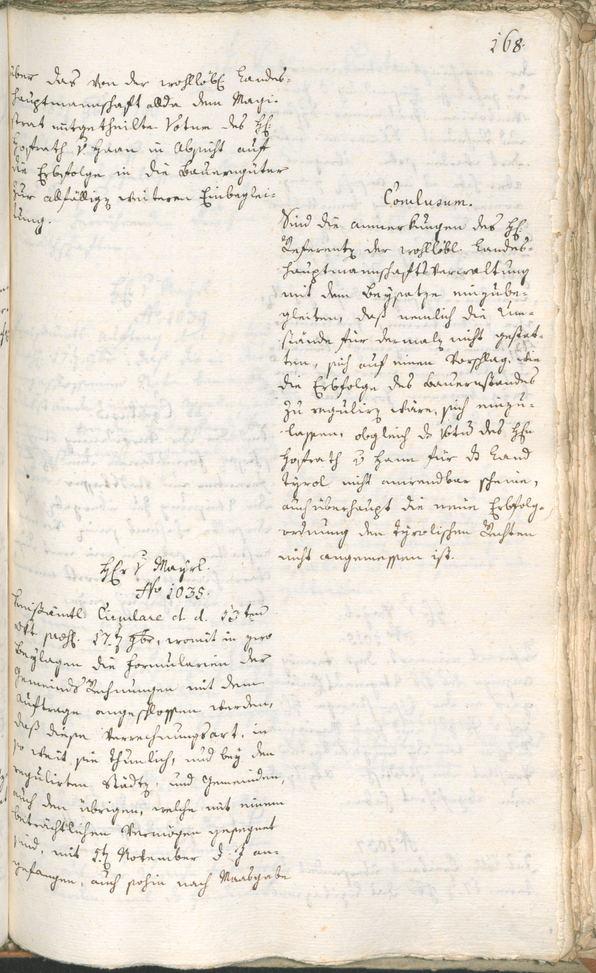 168.
über das von der wohllöbl. Landes-
hauptmannschaft allda dem Magi-
strat mitgetheilte Votum des H:
Hofrath v Haan in Absicht auf
die Erbfolge in die Bauerngüter
zur allfällign weiteren Einbeglei-
tung.
Conclusum.
Sind die anmerkungen des H:
Referenten der wohllöbl. Landes-
hauptmannschafts Verwaltung
mit dem Beysatze einzube-
gleiten, daß nemlich die Um-
stände für dermaln nicht gestat-
ten, sich auf einen Vorschlag, wie
die Erbfolge des Bauernstandes
zu regulirn wäre, sich einzu-
lassen, obgleich das Votum des H:
Hofrath v Haan für das Land
Tyrol nicht anwendbar scheine,
auch überhaupt die neue Erbfolg-
ordnung den Tyrolischen Rechten
nicht angemessen ist.
H:r v Mayrl.
No 1035.
Kreisämtl. Circulare d. d. 13ten
et præs. 17. 8br, womit in
Beylagen die Formularien der
Gemeinds Rechnungen mit dem
Auftrage angeschlossen werden,
daß diese Verrechnungsart, in
so weit sie thunlich, und bey den
regulirten Städten, und Gemeinden,
auch den übrigen, welche mit einem
beträchtlichen Vermögen gesegnet
sind, mit 1ten November d. J an-
gefangen, auch sohin nach Maabgabe